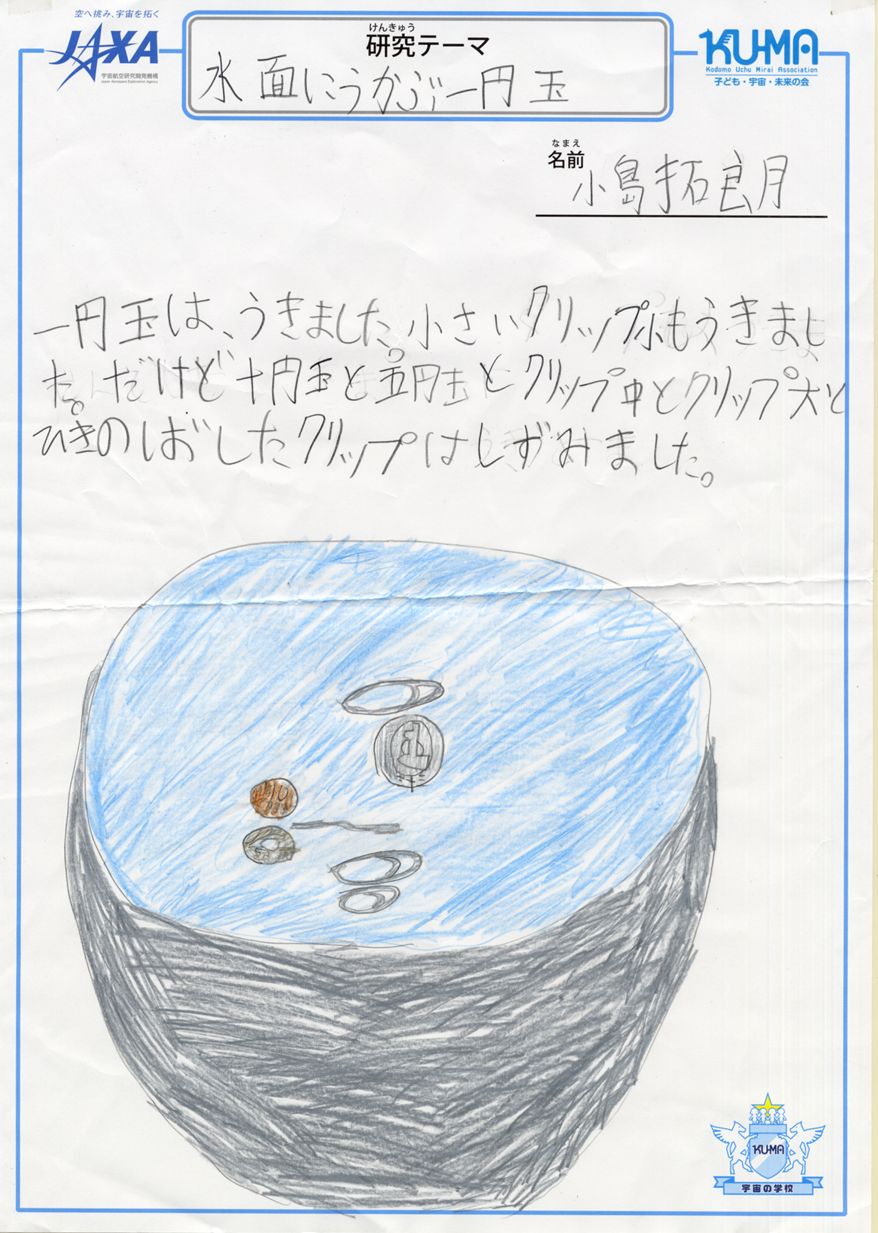 空へ挑み、宇宙を拓く
JAXA
宇宙航空研究開発機構
Japan Aerospace Exploration Agency
けんきゅう
研究テーマ
水面にうかぶ一円玉
KU-MA
Kodomo Uchu Mirai Association
子ども・宇宙・未来の会
なまえ
名前
小島拓良月
一円玉は、うきました。小さいクリップ小もうきまし
た。だけど十円玉と五円玉とクリップ中とクリップ大と
ひきのばしたクリップはしずみました。
KU-MA
宇宙の学校